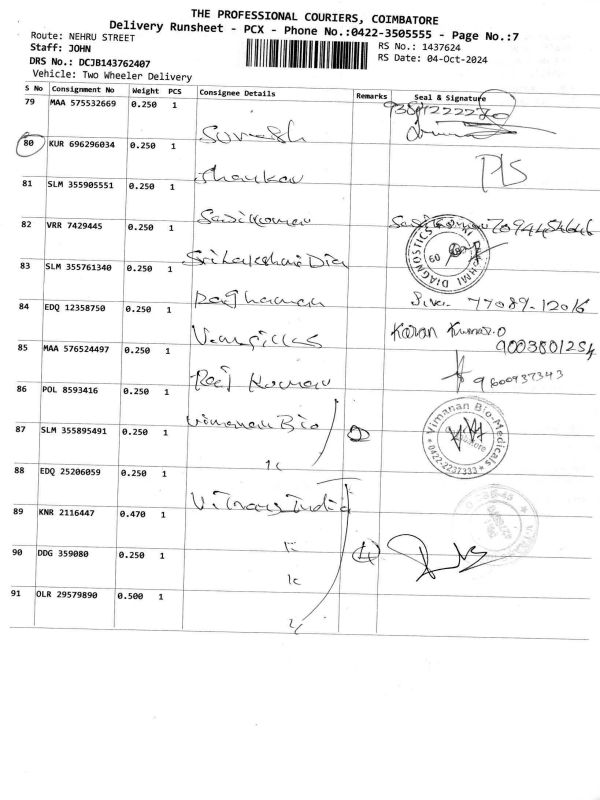 THE PROFESSIONAL COURIERS, COIMBATORE
Delivery Runsheet - PCX - Phone No.:0422-3505555 - Page No.:7
Route: NEHRU STREET
RS No.: 1437624
Staff: JOHN
RS Date: 04-Oct-2024
DRS No.: DCJB143762407
Vehicle: Two Wheeler Delivery
S No Consignment No Weight PCS Consignee Details Remarks Seal & Signature
79 MAA 575532669 0.250 1 Suresh
80 KUR 696296034 0.250 1 Shankar
81 SLM 355905551 0.250 1 Sasikumar
82 VRR 7429445 0.250 1 Sri Lakshmi Dia
83 SLM 355761340 0.250 1
84 EDQ 12358750 0.250 1 77089-12016
85 MAA 576524497 0.250 1 Raj Kumar 9003801254
9600937343
86 POL 8593416 0.250 1 Vimanan Bio
Vimanan Bio-Medicals
0422-2237333
87 SLM 355895491 0.250 1
88 EDQ 25206059 0.250 1
89 KNR 2116447 0.470 1
90 DDG 359080 0.250 1 4
91 OLR 29579890 0.500 1